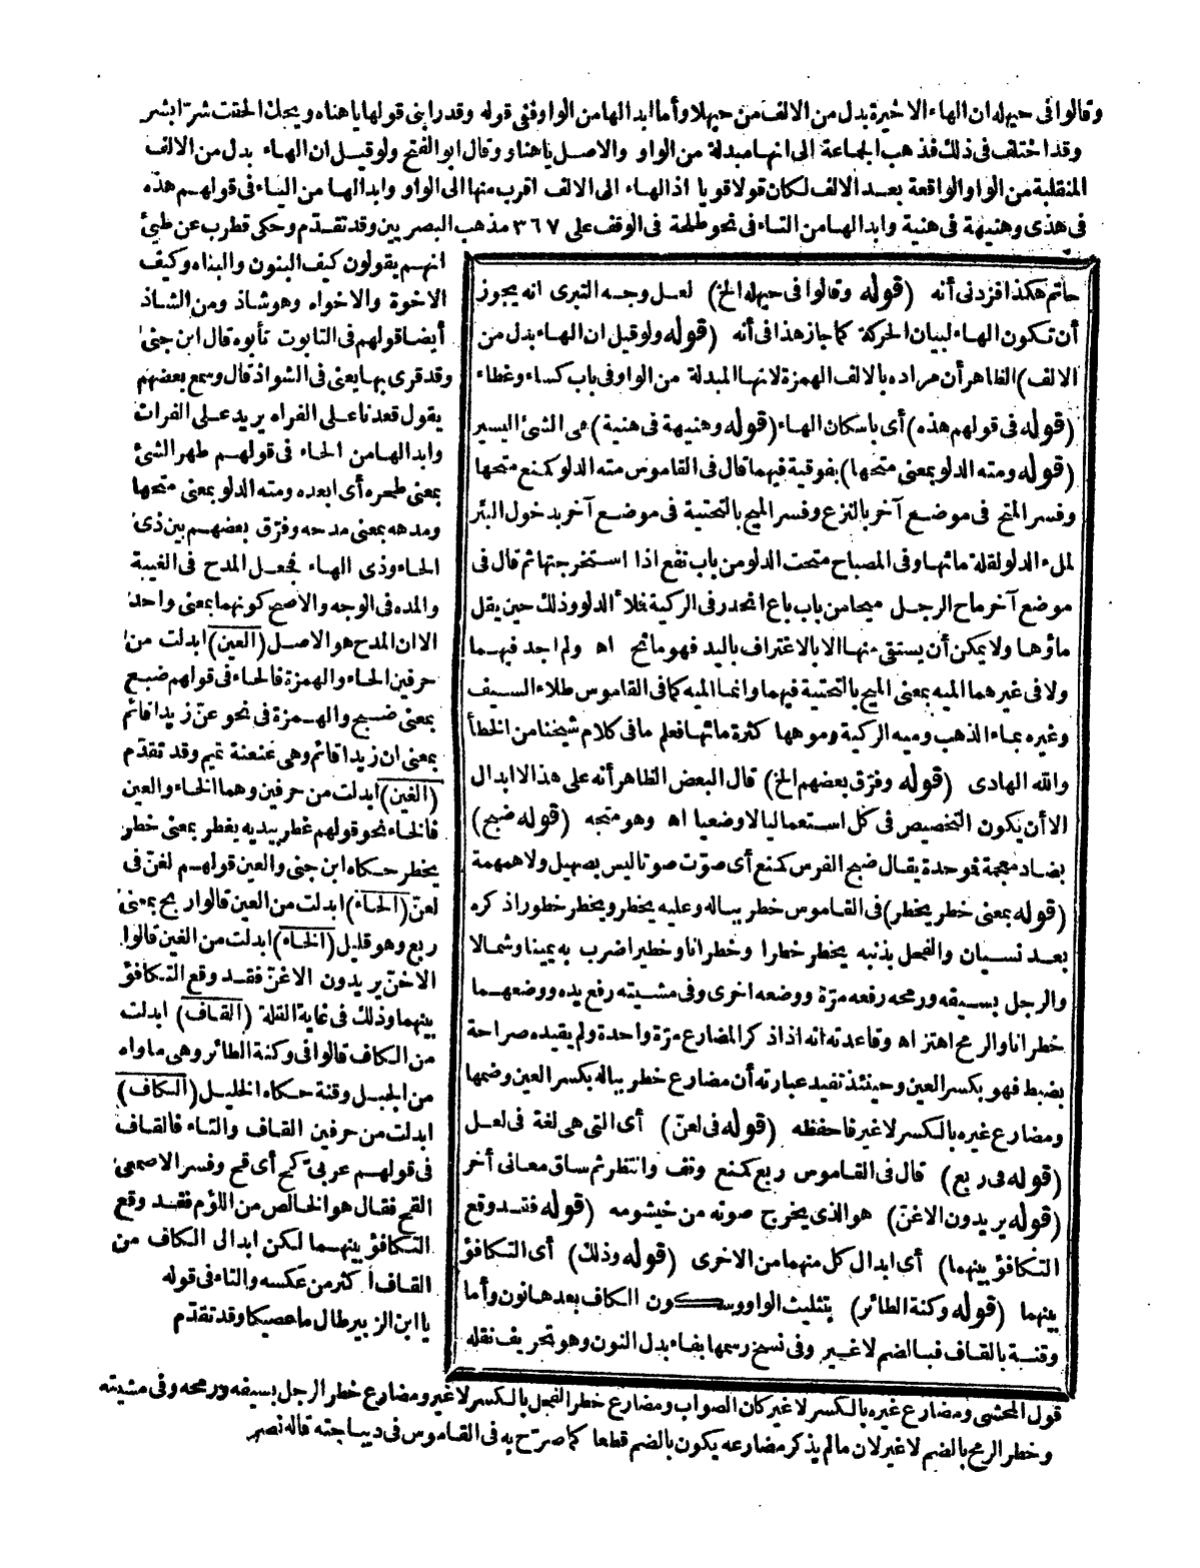 وقالوا فى حيهله ان الهاء الاخيرة بدل من الالف من حيهلا وأما ابدالها من الواو ففى قوله وقد رابنى قولها يا هناه ويحك الحقت شرّا بشر
وقد اختلف فى ذلك فذهب الجماعة الى انها مبدلة من الواو والاصل يا هناو وقال ابو الفتح ولو قيل ان الهاء بدل من الالف
المنقلبة من الواو الواقعة بعد الالف لكان قولا قويا اذ الهاء الى الالف اقرب منها الى الواو وابدالها من الياء فى قولهم هذه
فى هذى وهنيهة فى هنية وابدالها من التاء فى نحو طلحة فى الوقف على ٣٦٧ مذهب البصريين وقد تقدّم وحكى قطرب عن طيئ
انهم يقولون كيف البنون والبناه وكيف
الاخوة والاخواه وهو شاذ ومن الشاذ
أيضا قولهم فى التابوت تأبوه قال ابن جنى
وقد قرى بها يعنى فى الشواذ قال وسمع بعضهم
يقول قعدنا على الفراه يريد على الفرات
وابدالها من الحاء فى قولهم طهر الشئ
بمعنى طحره أى ابعده ومته الدلو بمعنى متحها
ومدهه بمعنى مدحه وفرّق بعضهم بين ذى
الحاء وذى الهاء فجعل المدح فى الغيبة
والمده فى الوجه والاصح كونهما بمعنى واحد
الا ان المدح هو الاصل (العين) ابدلت من
حرفين الحاء والهمزة فالحاء فى قولهم ضبع
بمعنى ضبح والهمزة فى نحو عنّ زيدا قائم
بمعنى ان زيدا قائم وهى عنعنة تميم وقد تقدّم
(الغين) ابدلت من حرفين وهما الخاء والعين
فالخاء نحو قولهم غطر بيديه يغطر بمعنى خطر
يخطر حكاه ابن جنى والعين قولهم لغنّ فى
لعنّ (الحاء) ابدلت من العين قالوا ربح بمعنى
ربع وهو قليل (الخاء) ابدلت من الغين قالوا
الاخنّ يريدون الاغنّ فقد وقع التكافؤ
بينهما وذلك فى غاية القلة (القاف) ابدلت
من الكاف قالوا فى وكنة الطائر وهى ماواه
من الجبل وقنة حكاه الخليل (الكاف)
ابدلت من حرفين القاف والتاء فالقاف
فى قولهم عربى كح أى قح وفسر الاصمعى
القح فقال هو الخالص من اللؤم فقد وقع
التكافؤ بينهما لكن ابدال الكاف من
القاف أكثر من عكسه والتاء فى قوله
يا ابن الزبير طال ما عصيكا وقد تقدّم
حاتم هكذا فزدنى أنه (قوله وقالوا فى حيهله الخ) لعل وجه التبرى انه يجوز
أن تكون الهاء لبيان الحركة كما جاز هذا فى أنه (قوله ولو قيل ان الهاء بدل من
الالف) الظاهر أن مراده بالالف الهمزة لانها المبدلة من الواو فى باب كساء وغطاء
(قوله فى قولهم هذه) أى باسكان الهاء (قوله وهنيهة فى هنية) هى الشئ اليسير
(قوله ومته الدلو بمعنى متحها) بفوقية فيهما قال فى القاموس مته الدلو كمنع متحها
وفسر المتح فى موضع آخر بالنزع وفسر الميح بالتحتية فى موضع آخر بدخول البئر
لملء الدلو لقلة مائها وفى المصباح متحت الدلو من باب نفع اذا استخرجتها ثم قال فى
موضع آخر ماح الرجل ميحا من باب باع انحدر فى الركية فملأ الدلو وذلك حين يقل
ماؤها ولا يمكن أن يستقى منها الا بالاغتراف باليد فهو مائح اه ولم اجد فيهما
ولا فى غيرهما الميه بمعنى الميح بالتحتية فيهما وانما الميه كما فى القاموس طلاء السيف
وغيره بماء الذهب وميه الركية وموهها كثرة مائها فعلم ما فى كلام شيخنا من الخطأ
والله الهادى (قوله وفرّق بعضهم الخ) قال البعض الظاهر أنه على هذا لا ابدال
الا أن يكون التخصيص فى كل استعماليا لا وضعيا اه وهو متجه (قوله ضبح)
بضاد معجمة فوحدة يقال ضبح الفرس كمنع أى صوّت صوتا ليس بصهيل ولا همهمة
(قوله بمعنى خطر يخطر) فى القاموس خطر بباله وعليه يخطر ويخطر خطورا ذكره
بعد نسيان والفحل بذنبه يخطر خطرا وخطرانا وخطيرا ضرب به يمينا وشمالا
والرجل بسيفه ورمحه رفعه مرّة ووضعه اخرى وفى مشيته رفع يده ووضعهما
خطرانا والرمح اهتز اه وقاعدته انه اذا ذكر المضارع مرّة واحدة ولم يقيده صراحة
بضبط فهو بكسر العين وحينئذ تفيد عبارته أن مضارع خطر بباله بكسر العين وضمها
ومضارع غيره بالكسر لا غير فاحفظه (قوله فى لعنّ) أى التى هى لغة فى لعل
(قوله فى ربع) قال فى القاموس ربع كمنع وقف وانتظر ثم ساق معانى أخر
(قوله يريدون الاغنّ) هو الذى يخرج صوته من خيشومه (قوله فقد وقع
التكافؤ بينهما) أى ابدال كل منهما من الاخرى (قوله وذلك) أى التكافؤ
بينهما (قوله وكنة الطائر) بتثليث الواو وسكون الكاف بعدها نون وأما
وقنة بالقاف فبالضم لا غير وفى نسخ رسمها بفاء بدل النون وهو تحريف نقله
قول المحشى ومضارع غيره بالكسر لا غير كان الصواب ومضارع خطر الفحل بالكسر لا غير ومضارع خطر الرجل بسيفه ورمحه وفى مشيته
وخطر الرمح بالضم لا غير لان ما لم يذكر مضارعه يكون بالضم قطعا كما صرّح به فى القاموس فى ديباجته قاله نصر